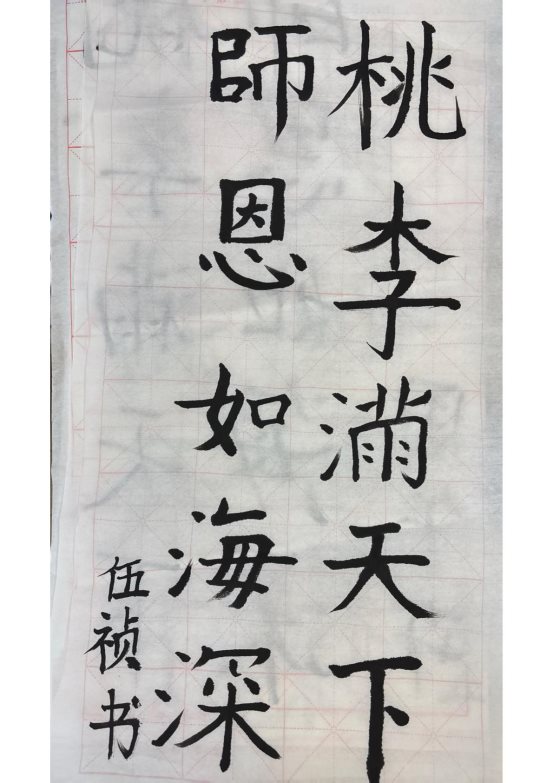 桃李滿天下
師恩如海深
伍祯书